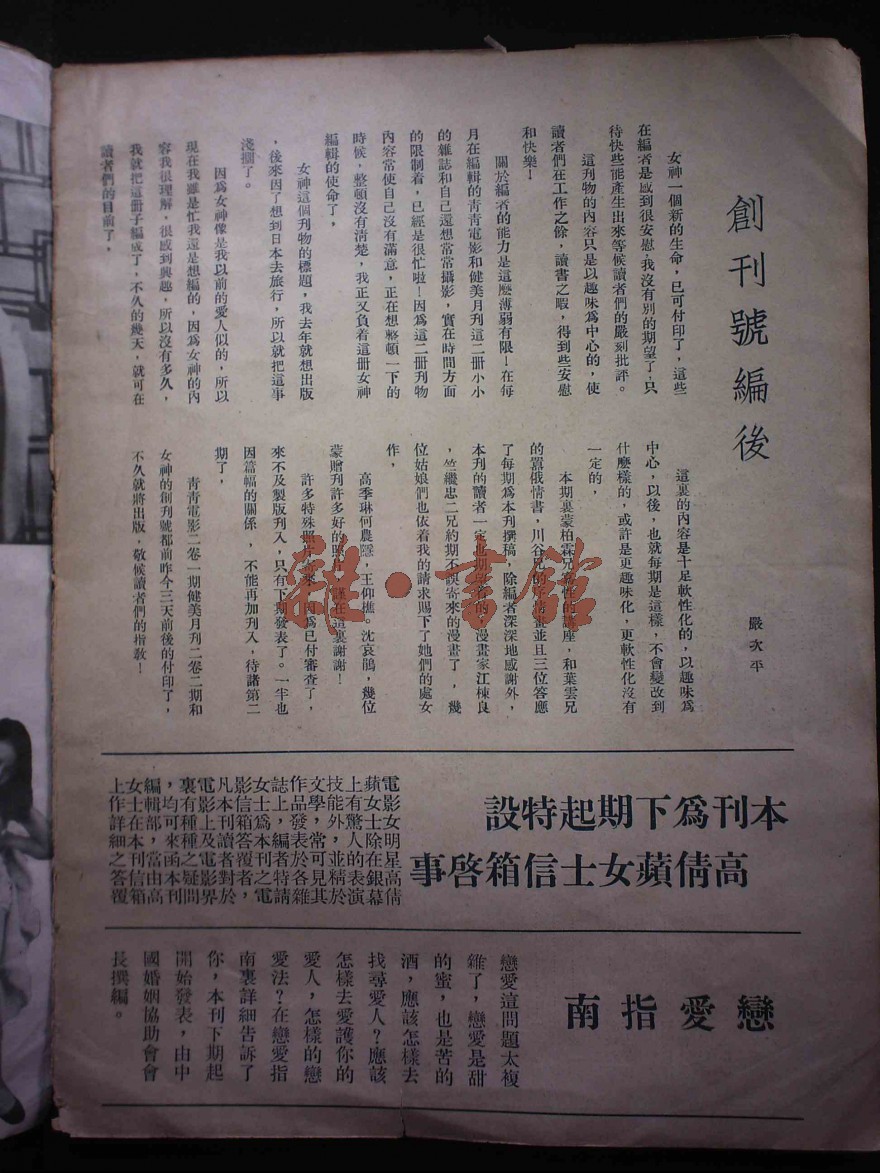 創刊號編後
嚴次平
女神一個新的生命，已可付印了，這些
在編者是感到很安慰，我沒有別的期望了，只
待快些能產生出來等候讀者們的嚴刻批評。
這刊物的內容只是以趣味為中心的，使
讀者們在工作之餘，讀書之暇，得到些安慰
和快樂！
關於編者的能力是這麼薄弱有限！在每
月在編輯的青青電影和健美月刊這二册小小
的雜誌和自己還想常常攝影，實在時間方面
的限制着，已經是很忙啦！因為這二册刊物
內容常使自己沒有滿意，正在想整頓一下的
時候，整頓沒有清楚，我正又負着這册女神
編輯的使命了，
女神這個刊物的標題，我去年就想出版
，後來因了想到日本去旅行，所以就把這事
淺擱了。
因為女神像是我以前的愛人似的，所以
現在我雖是忙我還是想編的，因為女神的內
容我很理解，很感到興趣，所以沒有多久，
我就把這册子編成了，不久的幾天，就可在
讀者們的目前了，
這裏的內容是十足軟性化的，以趣味為
中心，以後，也就每期是這樣，不會變改到
什麼樣的，或許是更趣味化，更軟性化沒有
一定的，
本期裏蒙柏霖兄寫性的講座，和葉雲兄
的囂俄情書，川谷兄的抒情畫並且三位答應
了每期為本刊撰稿，除編者深深地感謝外，
本刊的讀者一定也期望着的，漫畫家江棟良
，竺繼忠二兄約期不誤寄來的漫畫了，幾
位姑娘們也依着我的請求賜下了她們的處女
作，
高季琳何農隱，王仰樵。沈哀鵑，幾位
蒙贈刊許多好的照片，謹在這裏謝謝！
許多特殊照片寄來，因為已付審查了，
來不及製版刊入，只有下期發表了。一半也
因篇幅的關係，不能再加刊入，待諸第二
期了，
青青電影二卷一期健美月刊二卷二期和
女神的創刊號都前昨今三天前後的付印了，
不久就將出版，敬候讀者們的指教！
本刊為下期起特設
高倩蘋女士信箱啓事
電影女明星高倩
蘋女士除在銀幕
上有驚人的表演
技能外，並精於
文學，常可見其
作品發表於各雜
誌上，編者特請
女士為本刊之電
影信箱答覆者，
凡本刊讀者對於
電影上及電影界
裏有種種之疑問
，均可來函本刊
編輯部，當由高
女士在本刊信箱
上作詳細之答覆
戀愛指南
戀愛這問題太複
雜了，戀愛是甜
的蜜，也是苦的
酒，應該怎樣去
找尋愛人？應該
怎樣去愛護你的
愛人，怎樣的戀
愛法？在戀愛指
南裏詳細告訴了
你，本刊下期起
開始發表，由中
國婚姻協助會會
長撰編。
雜·書館